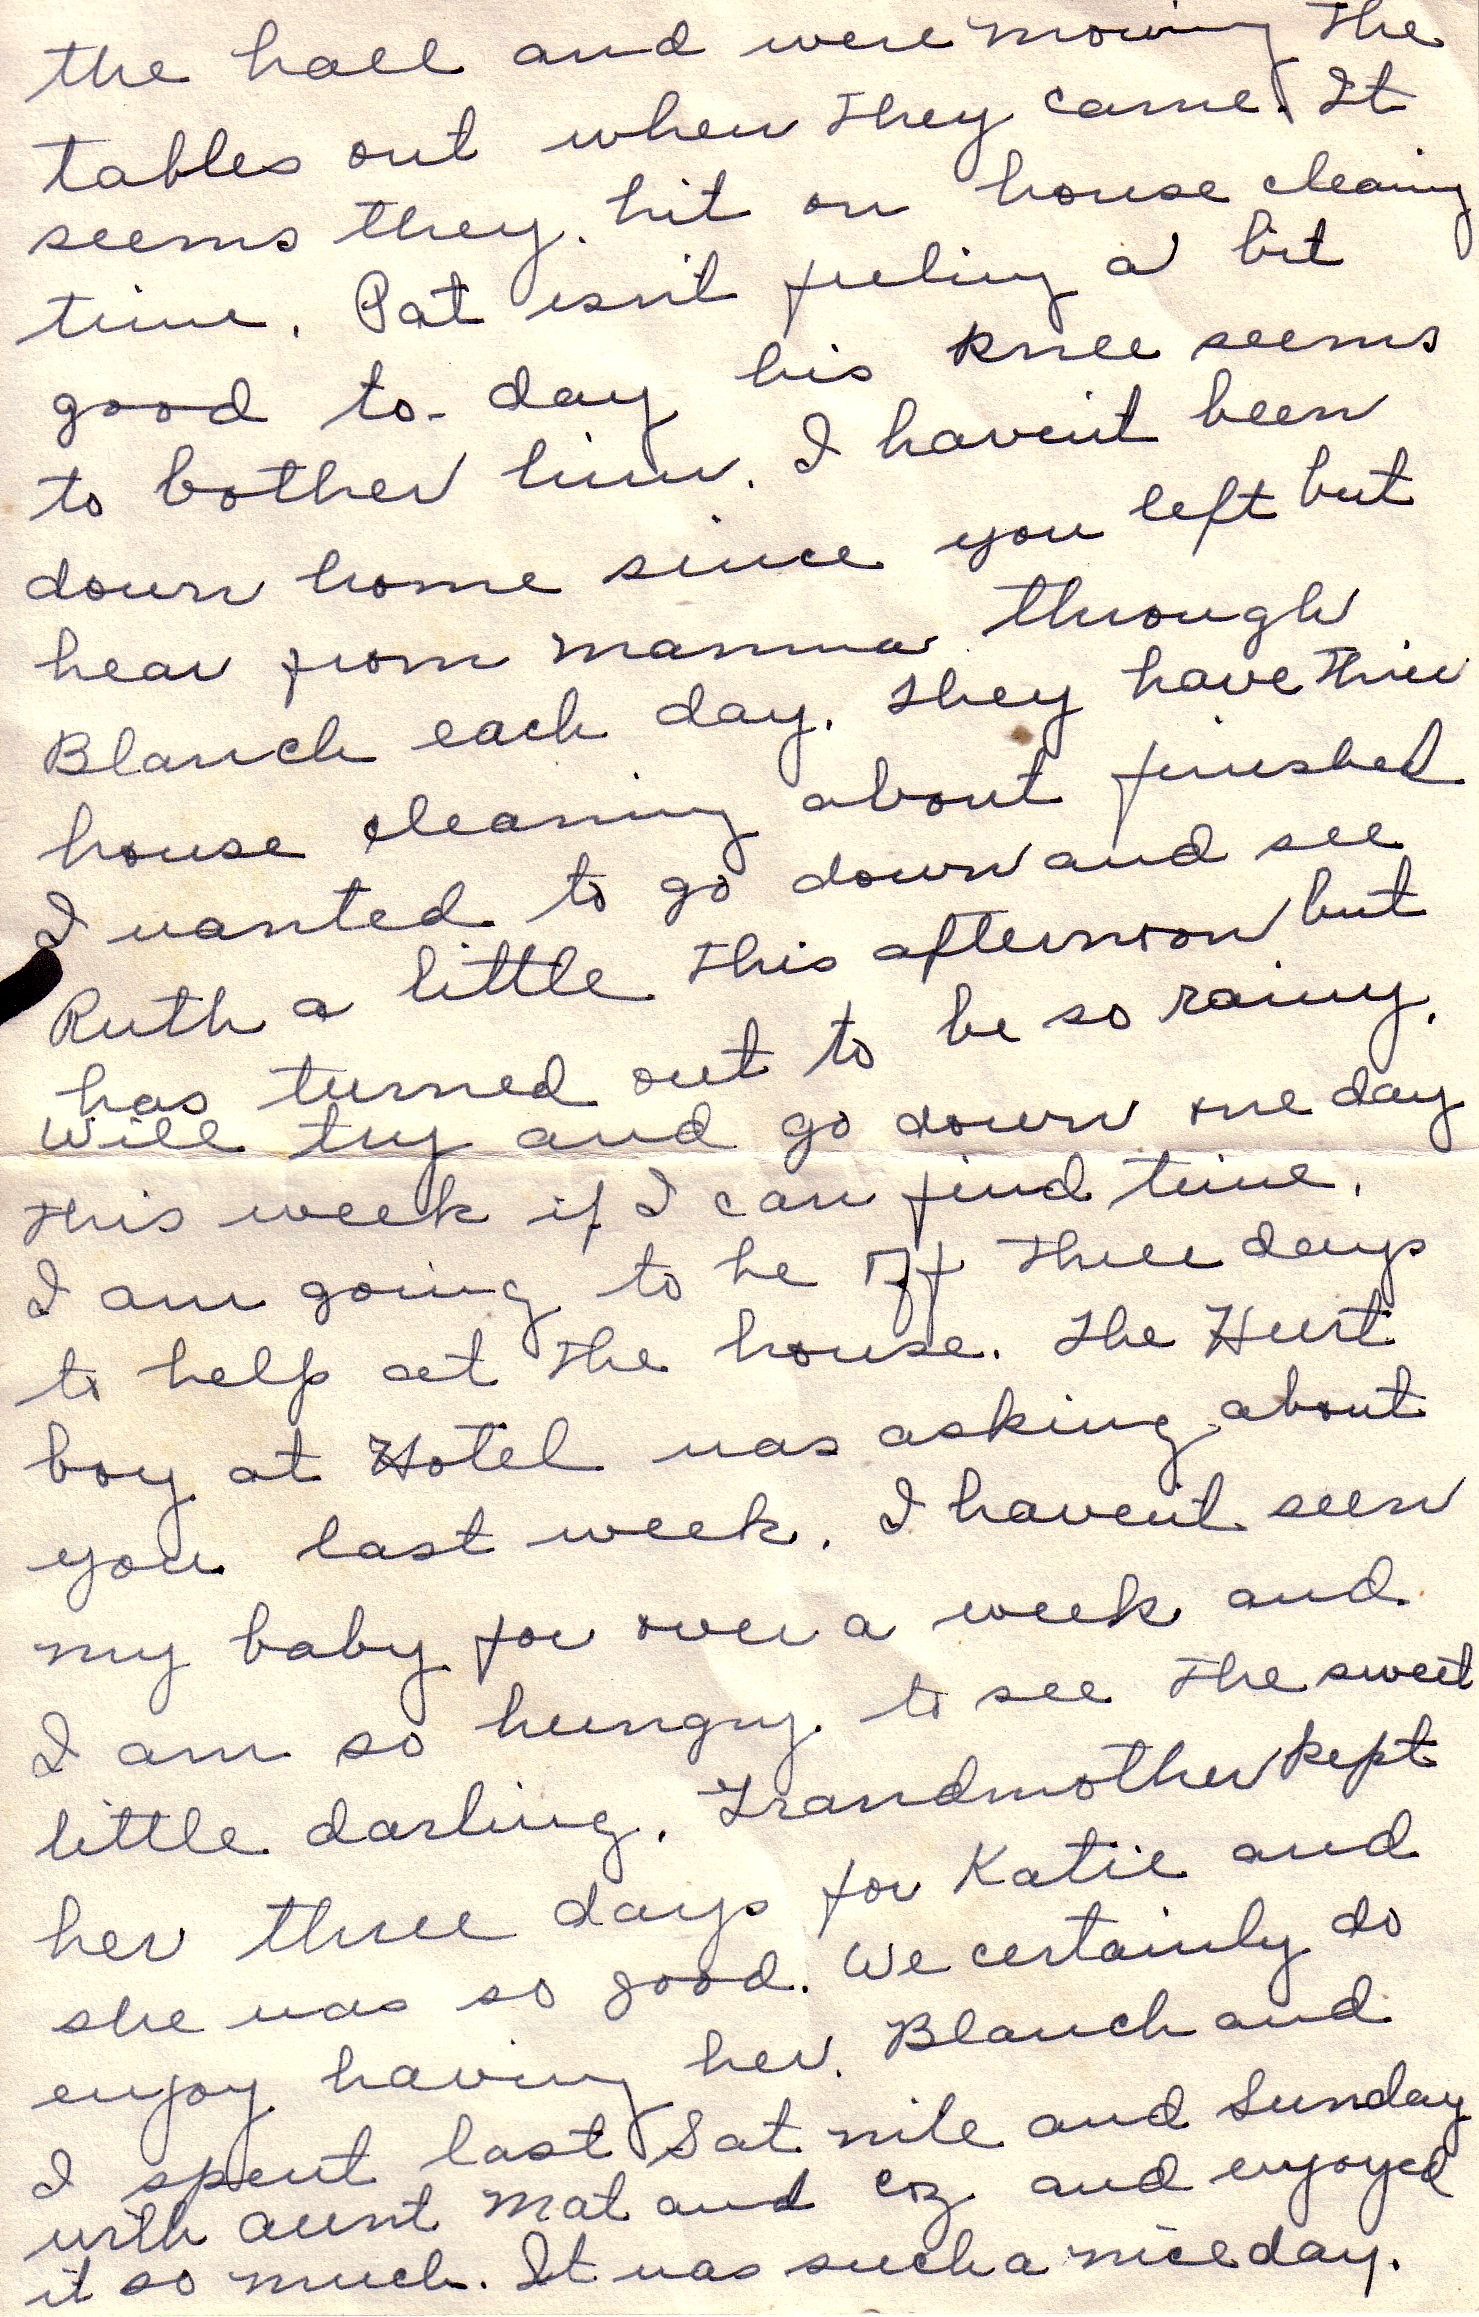 the hall and were moving the
tables out when they came. It
seems they hit on house cleaing
time. Pat isn't feeling a bit
good to-day his knee seems
to bother him. I haven't been
down home since you left but
hear from mamma through
Blanch each day. They have thier
house cleaning about finished
I wanted to go down and see
Ruth a little this afternoon but
has turned out to be so rainy.
Will try and go down one day
this week if I can find time.
I am going to be off three days
to help at the house. The Hurt
boy at Hotel was asking about
you last week. I haven't seen
my baby for over a week and
I am so hungry to see the sweet
little darling. Grandmother kept
her three days for Katie and
she was so good. We certainly do
enjoy having her. Blanch and
I spent last Sat nite and Sunday
with aunt Mat and Coz and enjoyed
it so much. It was such a nice day.